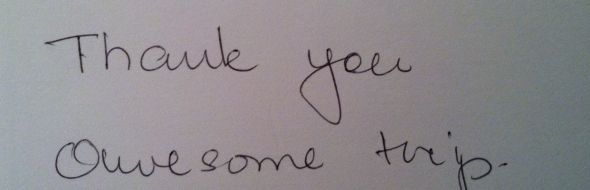 Thank you
Awesome trip.